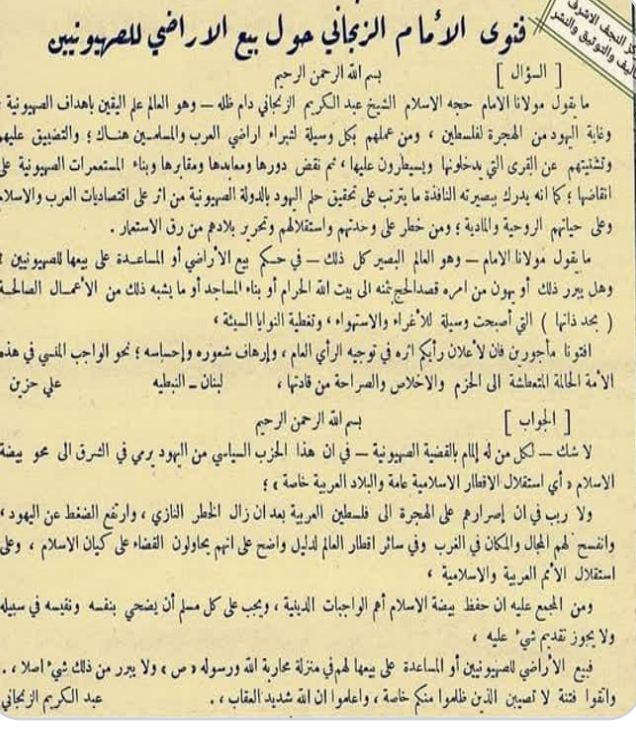 كز النجف الاشرف
أليف والتوثيق والنشر
فتوى الأمام الزنجاني حول بيع الاراضي للصهيونيين
[ السؤال ] بسم الله الرحمن الرحيم
ما يقول مولانا الامام حجه الاسلام الشيخ عبد الكريم الزنجاني دام ظله — وهو العالم علم اليقين باهداف الصهيونية
وغاية اليهود من الهجرة لفلسطين ، ومن عملهم بكل وسيلة لشراء اراضي العرب والمسلمين هنـاك ؛ والتضييق عليهم
وتشتيتهم عن القرى التي يدخلونها ويسيطرون عليها ، ثم نقض دورها ومعابدها ومقابرها وبناء المستعمرات الصهيونية على
انقاضها ؛ كما انه يدرك ببصيرته النافذة ما يترتب على تحقيق حلم اليهود بالدولة الصهيونية من اثر على اقتصاديات العرب والاسلام
وعلى حياتهم الروحية والمادية ؛ ومن خطر على وحدتهم واستقلالهم وتحرير بلادهم من رق الاستعمار .
ما يقول مولانا الامام — وهو العالم البصير كل ذلك — في حكم بيع الأراضي أو المساعـدة على بيعها للصهيونيين ؟
وهل يبرر ذلك أو يهون من امره قصد الحج بثمنه الى بيت الله الحرام أو بناء المساجد أو ما يشبه ذلك من الأعمـال الصالحـة
( بحد ذاتها ) التي أصبحت وسيلة للأغراء والاستهواء ، وتغطية النوايا السيئة ،
افتونا مأجورين فان لأعلان رأيكم اثره في توجيه الرأي العام ، وإرهاف شعوره وإحساسه ؛ نحو الواجب المنسي في هذه
الأمة الحالمة المتعطشة الى الحزم والاخلاص والصراحة من قادتها ، لبنان ــ النبطيه علي حزين
[ الجواب ] بسم الله الرحمن الرحيم
لا شك — لكل من له إلمام بالقضية الصهيونية — في ان هذا الحزب السياسي من اليهود يرمي في الشرق الى محو بيضة
الاسلام « أي استقلال الاقطار الاسلامية عامة والبلاد العربية خاصة » ؛
ولا ريب في ان إصرارهم على الهجرة الى فلسطين العربية بعد ان زال الخطر النازي ، وارتفع الضغط عن اليهود ،
وانفسح لهم المجال والمكان في الغرب وفي سائر اقطار العالم لدليل واضح على انهم يحاولون القضاء على كيان الاسلام ، وعلى
استقلال الأمم العربية والاسلامية ،
ومن المجمع عليه ان حفظ بيضة الاسلام أهم الواجبات الدينية ، ويجب على كل مسلم أن يضحي بنفسه ونفيسه في سبيله
ولا يجوز تقديم شيء عليه ،
فبيع الأراضي للصهيونيين أو المساعدة على بيعها لهم في منزلة محاربة الله ورسوله « ص » ولا يبرر من ذلك شيء اصلا ، .
واتقوا فتنة لا تصيبن الذين ظلموا منكم خاصة ، واعلموا ان الله شديد العقاب ، . عبد الكريم الزنجاني